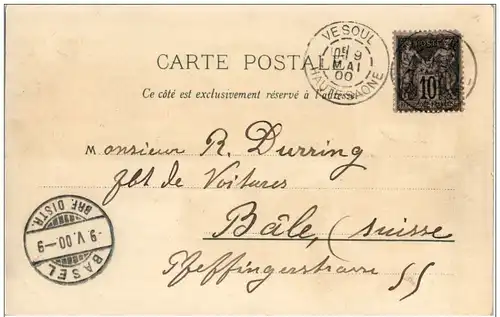 VESOUL
9
MAI
00
HAUTE-SAONE
POSTE
10
CARTE POSTALE
Ce côté est exclusivement réservé à l'adresse
Monsieur R. Durring
fbt de Voitures
Bâle, (Suisse
Pfeffingerstrasse 55
BRF. DISTR.
-9.V.00.-9
BASEL